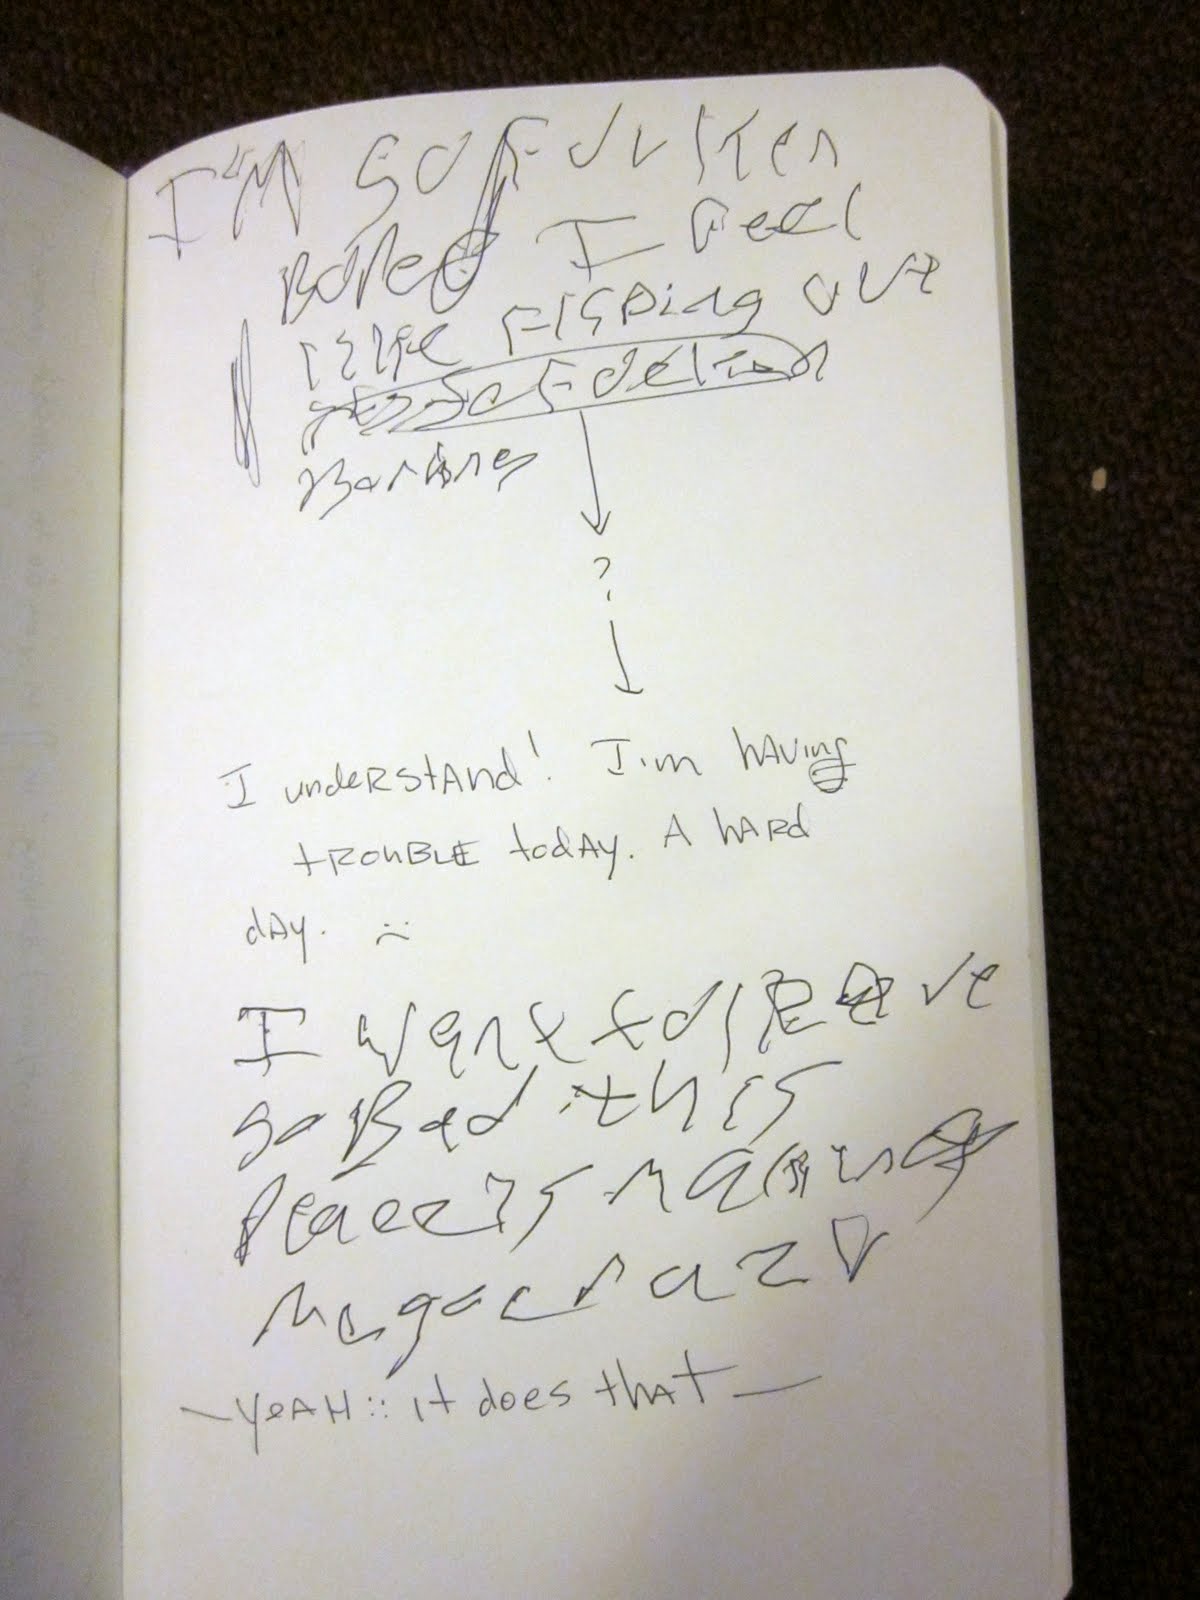 I'M SO FUCKEN
BORED I FEEL
like FLIPPING OUT
I understand! I'm having
trouble today. A hard
day. :(
I want to leave
so Bad this
Place is making
me go craz
— yeah :: it does that —